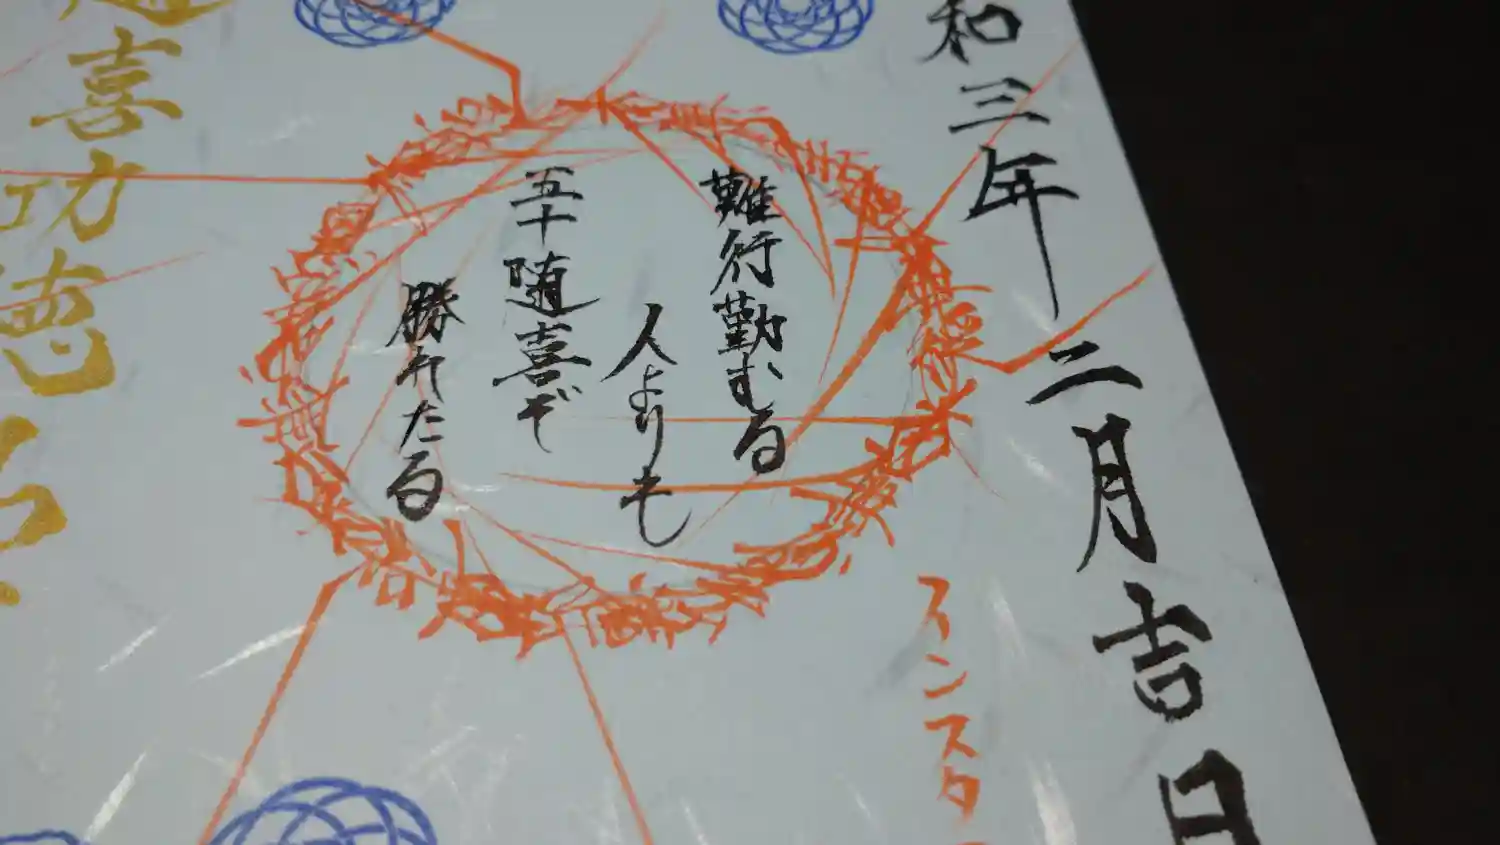 和三年二月吉日
インスタ
難行勤むる
人よりも
五十随喜ぞ
勝れたる
随喜功徳品